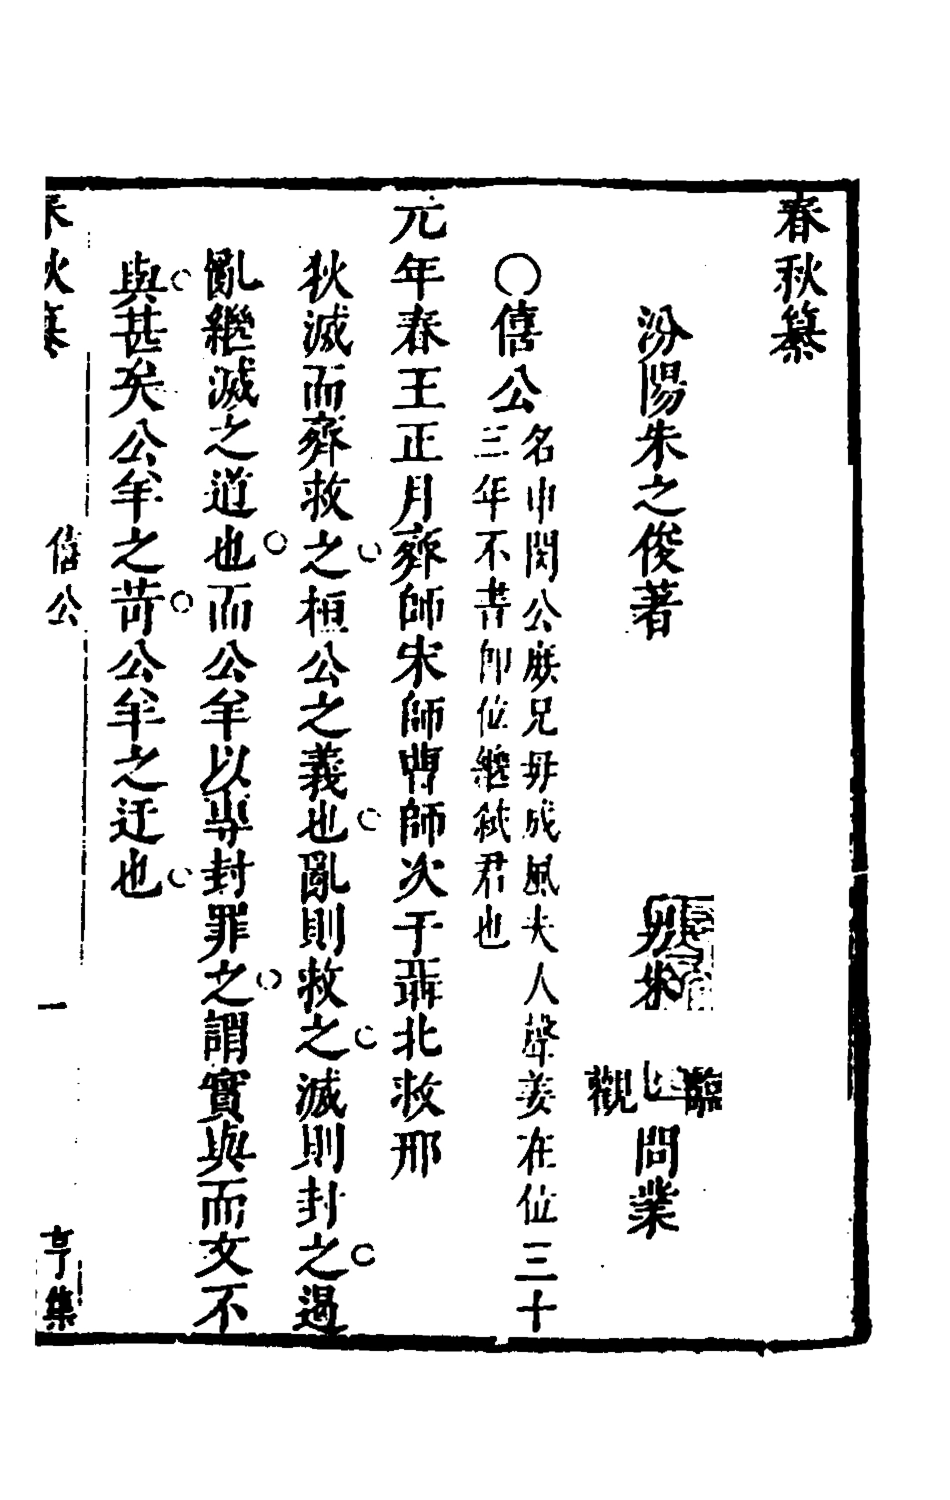 春秋纂
汾陽朱之俊著 男朱 臨 觀 問業
○僖公 名申閔公庶兄母成風夫人聲姜在位三十
三年不書即位繼弑君也
元年春王正月齊師宋師曹師次于聶北救邢
狄滅而齊救之桓公之義也亂則救之滅則封之遏
亂繼滅之道也而公羊以專封罪之謂實與而文不
與甚矣公羊之苛公羊之迂也
春秋纂 僖公 一 亨集